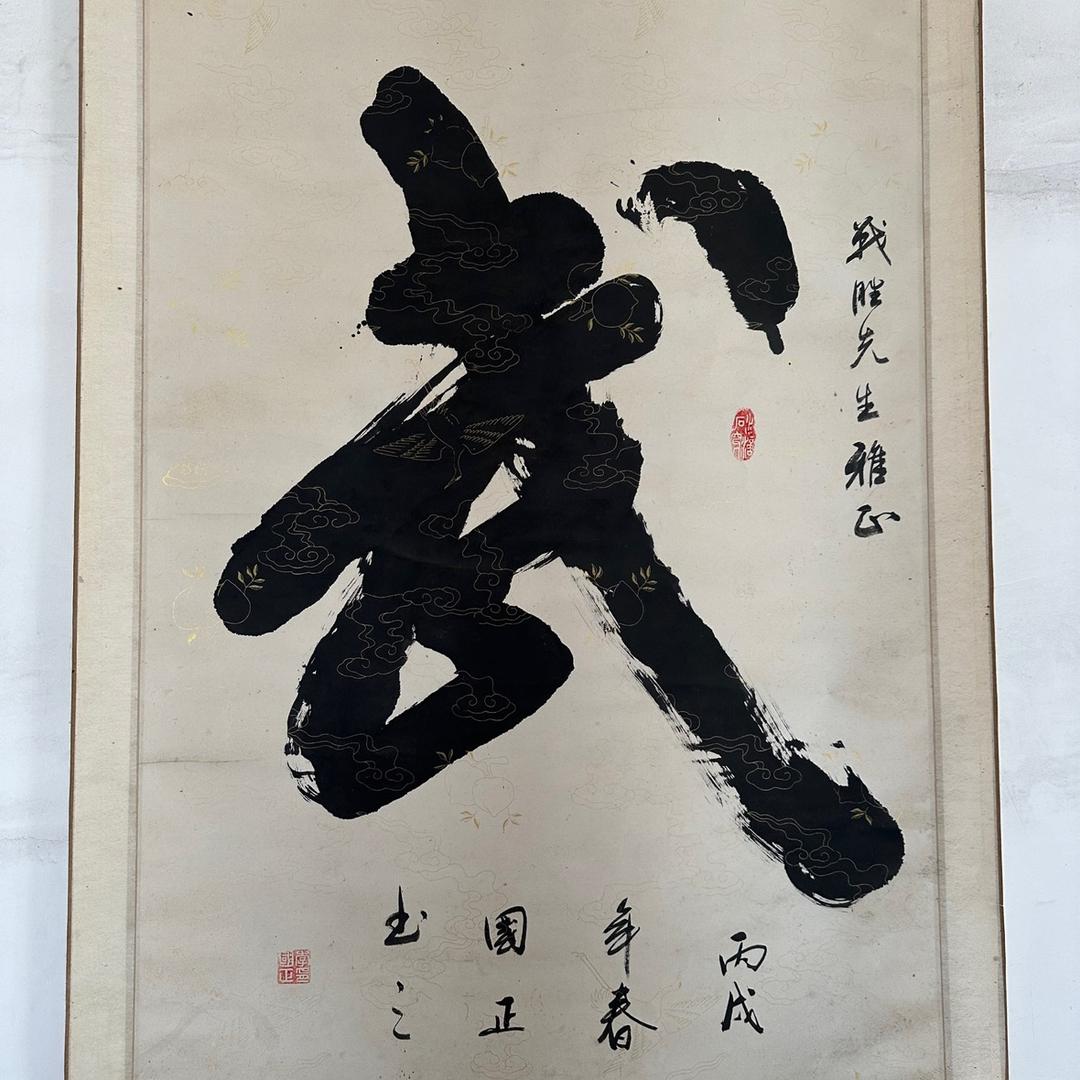 战胜先生雅正
武
丙戌
年春
國正
书之